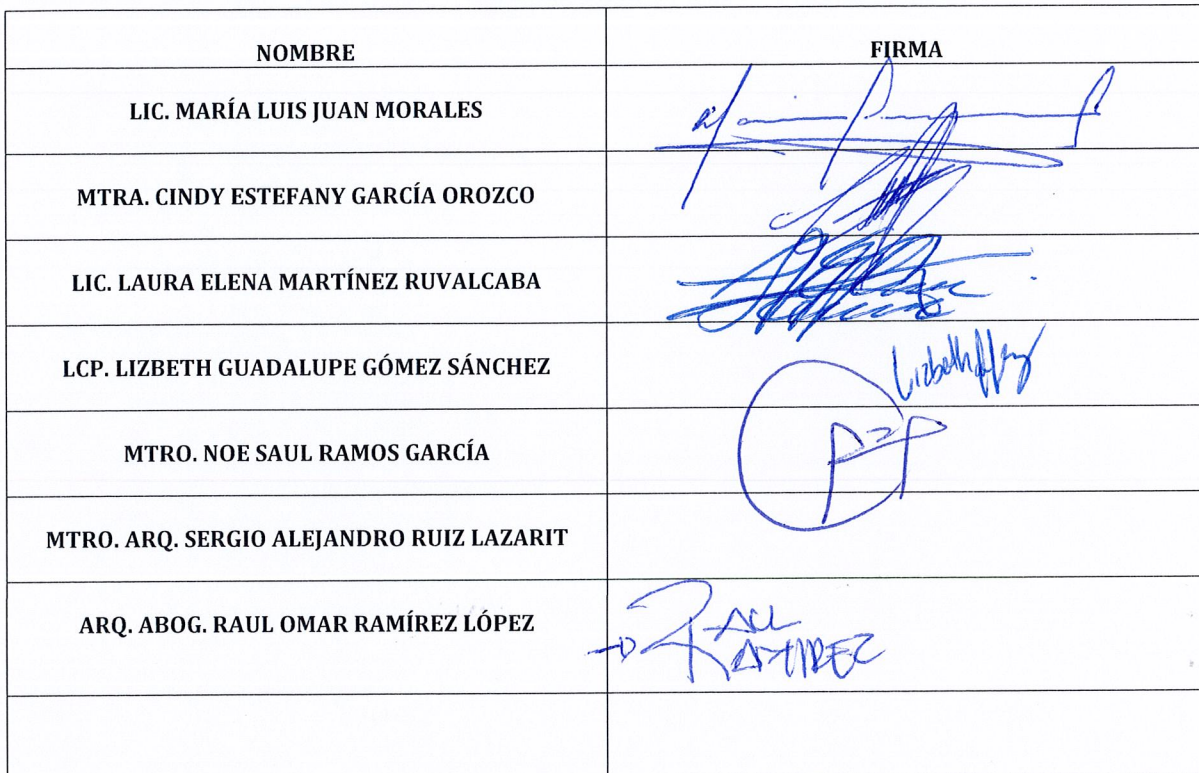 NOMBRE FIRMA
LIC. MARÍA LUIS JUAN MORALES
MTRA. CINDY ESTEFANY GARCÍA OROZCO
LIC. LAURA ELENA MARTÍNEZ RUVALCABA
LCP. LIZBETH GUADALUPE GÓMEZ SÁNCHEZ Lizbeth
MTRO. NOE SAUL RAMOS GARCÍA
MTRO. ARQ. SERGIO ALEJANDRO RUIZ LAZARIT
ARQ. ABOG. RAUL OMAR RAMÍREZ LÓPEZ RAUL
RAMIREZ